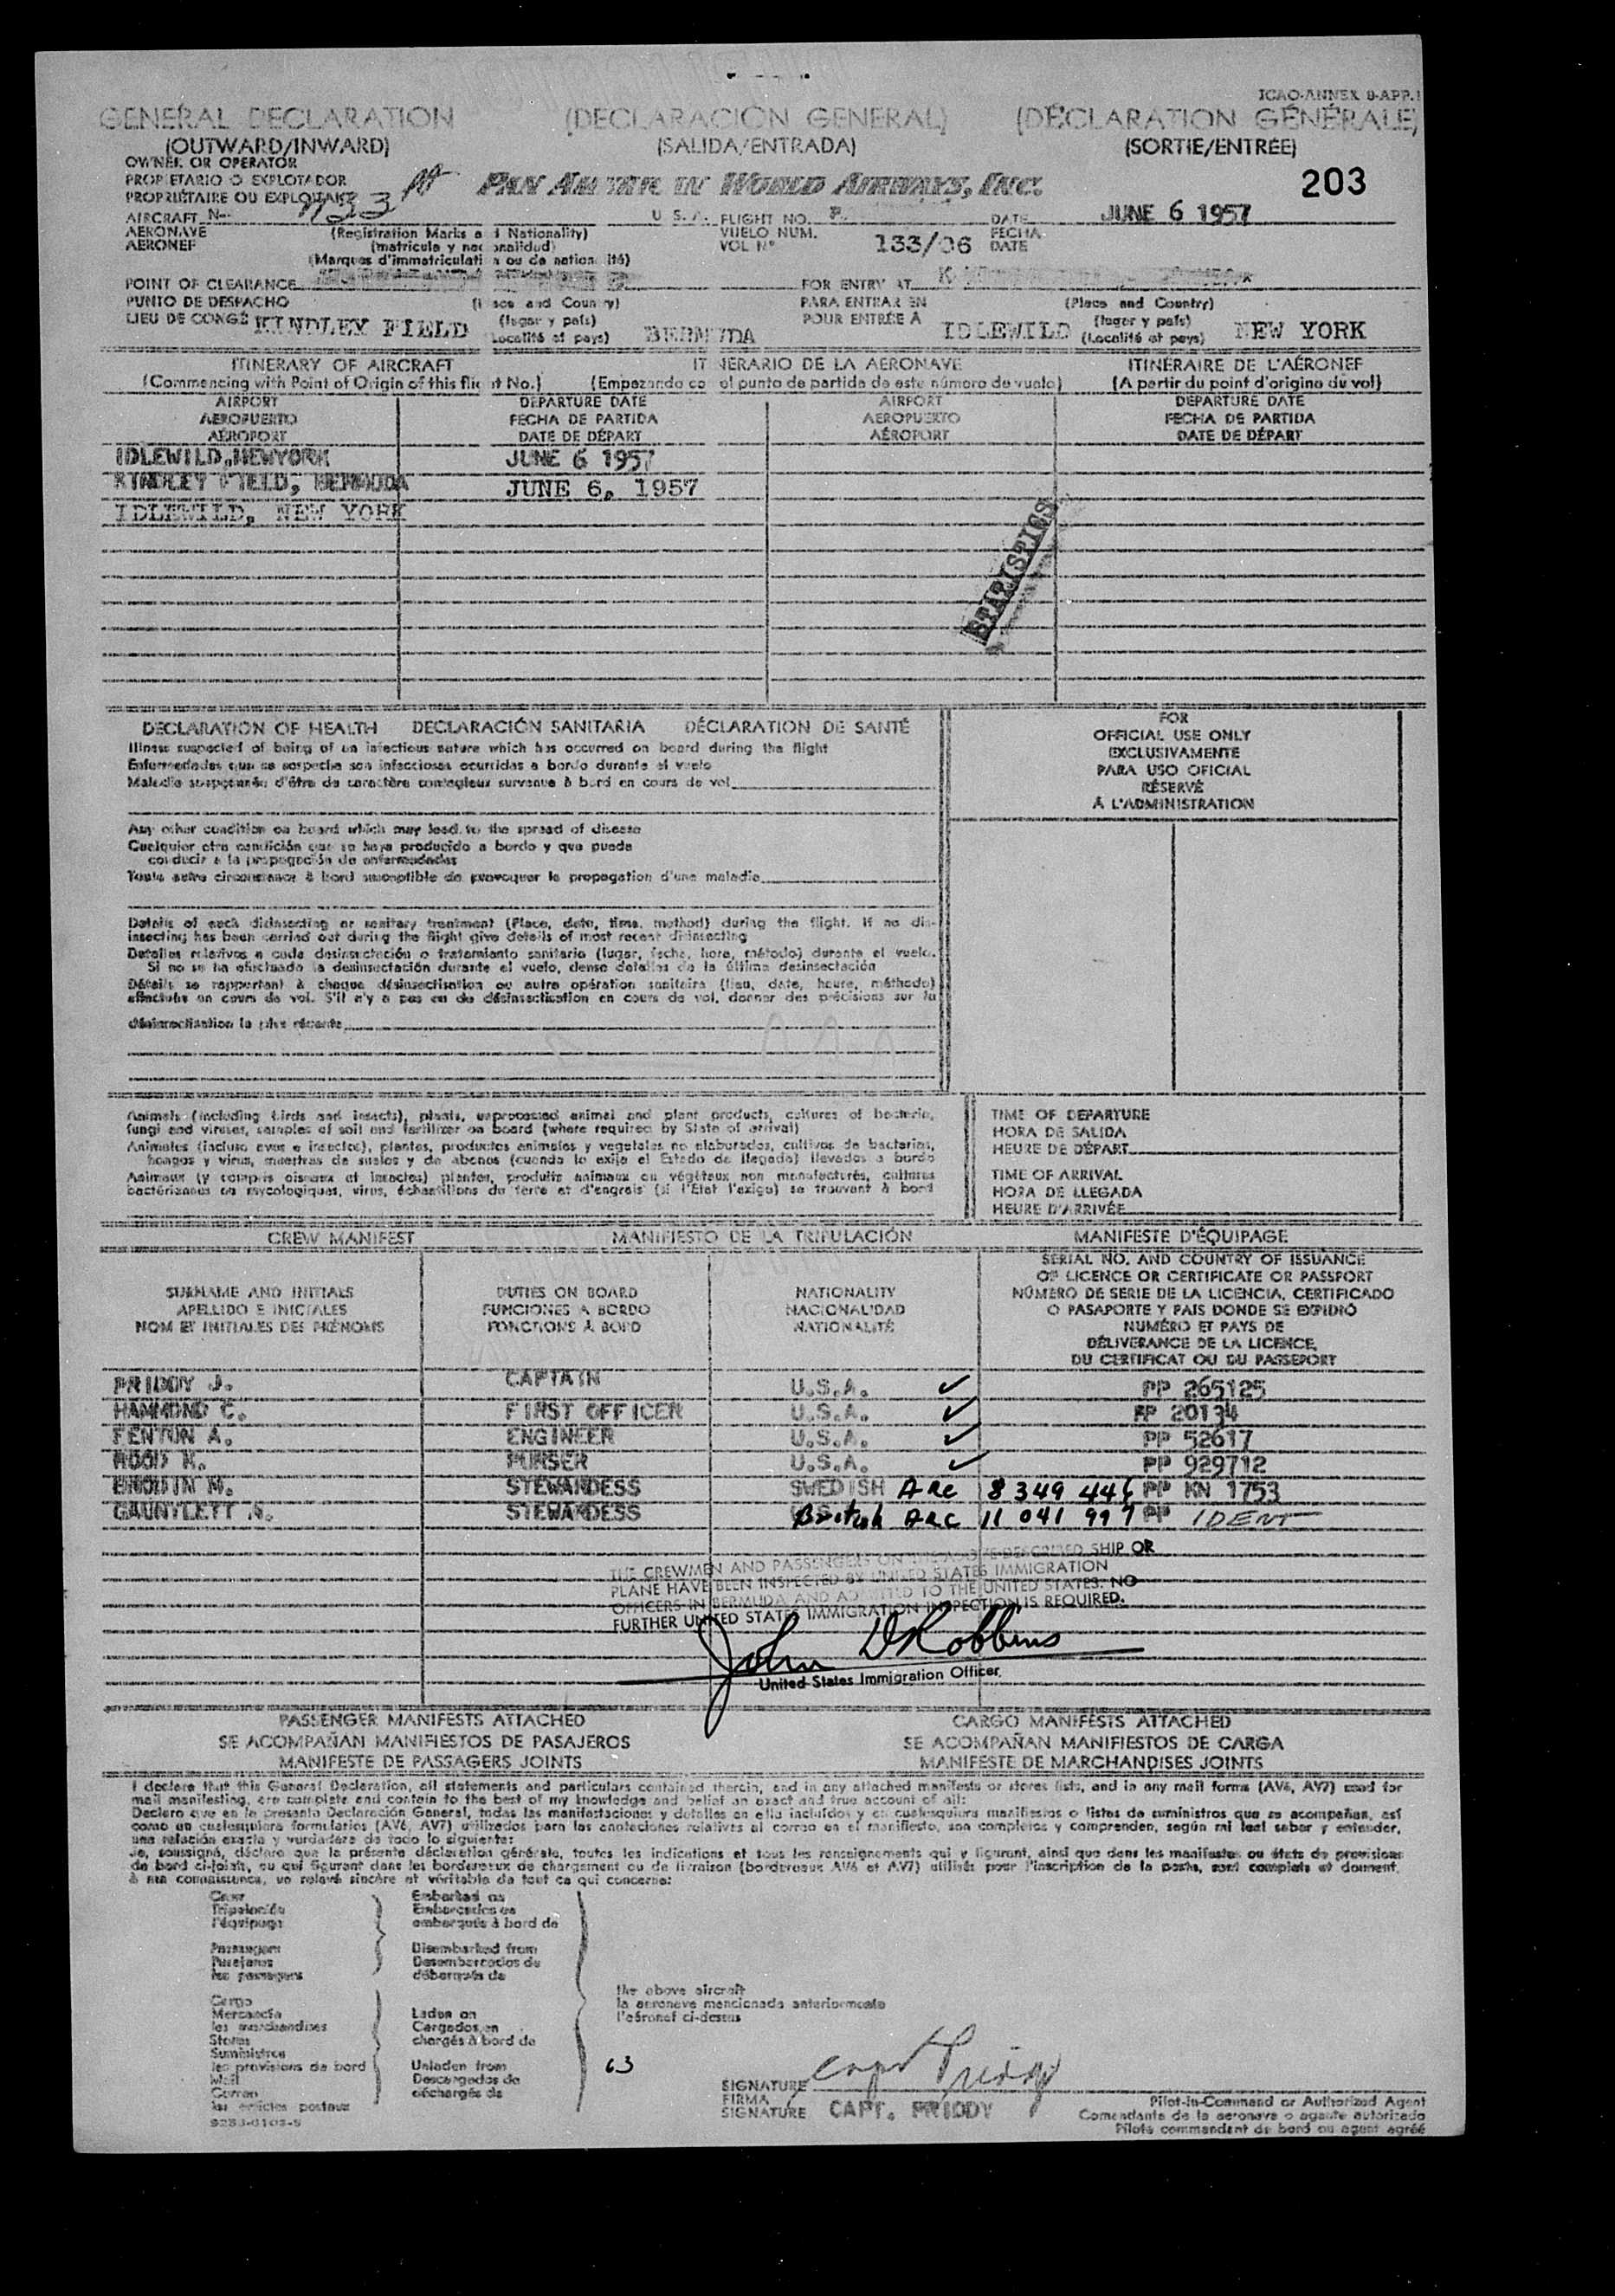 ICAO-ANNEX 9-APP.1
GENERAL DECLARATION (DECLARACIÓN GENERAL) (DÉCLARATION GÉNÉRALE)
(OUTWARD/INWARD) (SALIDA/ENTRADA) (SORTIE/ENTRÉE)
OWNER OR OPERATOR
PROPIETARIO O EXPLOTADOR PAN AMERICAN WORLD AIRWAYS, INC. 203
PROPRIÉTAIRE OU EXPLOITANT
AIRCRAFT N- U. S. A. FLIGHT NO. DATE JUNE 6 1957
AERONAVE (Registration Marks and Nationality) VUELO NUM. 133/06 FECHA
AERONEF (matricula y nacionalidad) VOL Nº DATE
(Marques d'immatriculation ou de nationalité)
POINT OF CLEARANCE FOR ENTRY AT
PUNTO DE DESPACHO (Place and Country) PARA ENTRAR EN (Place and Country)
LIEU DE CONGÉ KINDLEY FIELD (lugar y país) BERMUDA POUR ENTRÉE À IDLEWILD (lugar y país) NEW YORK
(Localité et pays) (Localité et pays)
ITINERARY OF AIRCRAFT ITINERARIO DE LA AERONAVE ITINÉRAIRE DE L'AÉRONEF
(Commencing with Point of Origin of this flight No.) (Empezando con el punto de partida de este número de vuelo) (A partir du point d'origine du vol)
AIRPORT DEPARTURE DATE AIRPORT DEPARTURE DATE
AEROPUERTO FECHA DE PARTIDA AEROPUERTO FECHA DE PARTIDA
AÉROPORT DATE DE DÉPART AÉROPORT DATE DE DÉPART
IDLEWILD,NEWYORK JUNE 6 1957
KINDLEY FIELD, BERMUDA JUNE 6, 1957
IDLEWILD, NEW YORK
STATISTICS
DECLARATION OF HEALTH DECLARACIÓN SANITARIA DÉCLARATION DE SANTÉ
Illness suspected of being of an infectious nature which has occurred on board during the flight
Enfermedades que se sospecha son infecciosas ocurridas a bordo durante el vuelo
Maladie soupçonnée d'être de caractère contagieux survenue à bord en cours de vol
FOR
OFFICIAL USE ONLY
EXCLUSIVAMENTE
PARA USO OFICIAL
RÉSERVÉ
À L'ADMINISTRATION
Any other condition on board which may lead to the spread of disease
Cualquier otra condición que se haya producido a bordo y que pueda
conducir a la propagación de enfermedades
Toute autre circonstance à bord susceptible de provoquer la propagation d'une maladie
Details of each disinsecting or sanitary treatment (Place, date, time, method) during the flight. If no dis-
insecting has been carried out during the flight give details of most recent disinsecting
Detalles relativos a cada desinsectación o tratamiento sanitario (lugar, fecha, hora, método) durante el vuelo.
Si no se ha efectuado la desinsectación durante el vuelo, dense detalles de la última desinsectación
Détails se rapportant à chaque désinsectisation ou autre opération sanitaire (lieu, date, heure, méthode)
effectuée en cours de vol. S'il n'y a pas eu de désinsectisation en cours de vol, donner des précisions sur la
désinsectisation la plus récente
Animals (including birds and insects), plants, unprocessed animal and plant products, cultures of bacteria,
fungi and viruses, samples of soil and fertilizer on board (where required by State of arrival)
Animales (incluso aves e insectos), plantas, productos animales y vegetales no elaborados, cultivos de bacterias,
hongos y virus, muestras de suelos y de abonos (cuando lo exija el Estado de llegada) llevados a bordo
Animaux (y compris oiseaux et insectes) plantes, produits animaux ou végétaux non manufacturés, cultures
bactériennes ou mycologiques, virus, échantillons du terre et d'engrais (si l'Etat l'exige) se trouvant à bord
TIME OF DEPARTURE
HORA DE SALIDA
HEURE DE DÉPART
TIME OF ARRIVAL
HORA DE LLEGADA
HEURE D'ARRIVÉE
CREW MANIFEST MANIFIESTO DE LA TRIPULACIÓN MANIFESTE D'ÉQUIPAGE
SURNAME AND INITIALS
APELLIDO E INICIALES
NOM ET INITIALES DES PRÉNOMS
DUTIES ON BOARD
FUNCIONES A BORDO
FONCTIONS À BORD
NATIONALITY
NACIONALIDAD
NATIONALITÉ
SERIAL NO. AND COUNTRY OF ISSUANCE
OF LICENCE OR CERTIFICATE OR PASSPORT
NÚMERO DE SERIE DE LA LICENCIA, CERTIFICADO
O PASAPORTE Y PAIS DONDE SE EXPIDIÓ
NUMÉRO ET PAYS DE
DÉLIVERANCE DE LA LICENCE,
DU CERTIFICAT OU DU PASSEPORT
PRIDDY J. CAPTAIN U.S.A. ✓ PP 265125
HAMMOND C. FIRST OFFICER U.S.A. ✓ PP 20134
FENTON A. ENGINEER U.S.A. ✓ PP 52617
ROOD K. PURSER U.S.A. ✓ PP 929712
M. STEWARDESS SWEDISH ARC 8 349 446 PP KN 1753
GAUNTLETT N. STEWARDESS British ARC 11 041 999 PP IDENT
THE CREWMEN AND PASSENGERS ON THE ABOVE-DESCRIBED SHIP OR
PLANE HAVE BEEN INSPECTED BY UNITED STATES IMMIGRATION
OFFICERS IN BERMUDA AND ADMITTED TO THE UNITED STATES. NO
FURTHER UNITED STATES IMMIGRATION INSPECTION IS REQUIRED.
John D Robbins
United States Immigration Officer.
PASSENGER MANIFESTS ATTACHED CARGO MANIFESTS ATTACHED
SE ACOMPAÑAN MANIFIESTOS DE PASAJEROS SE ACOMPAÑAN MANIFIESTOS DE CARGA
MANIFESTE DE PASSAGERS JOINTS MANIFESTE DE MARCHANDISES JOINTS
I declare that this General Declaration, all statements and particulars contained therein, and in any attached manifests or stores lists, and in any mail forms (AV6, AV7) used for
mail manifesting, are complete and contain to the best of my knowledge and belief an exact and true account of all:
Declaro que en la presente Declaración General, todas las manifestaciones y detalles en ella incluídos y en cualesquiera manifiestos o listas de suministros que se acompañan, así
como en cualesquiera formularios (AV6, AV7) utilizados para las anotaciones relativas al correo en el manifiesto, son completos y comprenden, según mi leal saber y entender,
una relación exacta y verdadera de todo lo siguiente:
Je, soussigné, déclare que la présente déclaration générale, toutes les indications et tous les renseignements qui y figurent, ainsi que dans les manifestes ou états de provisions
de bord ci-joints, ou qui figurent dans les bordereaux de chargement ou de livraison (bordereaux AV6 et AV7) utilisés pour l'inscription de la poste, sont complets et donnent,
à ma connaissance, un relevé sincère et véritable de tout ce qui concerne:
Crew
Tripulación
l'équipage
Embarked on
Embarcados en
embarqués à bord de
Passengers
Pasajeros
les passagers
Disembarked from
Desembarcados de
débarqués de
the above aircraft
la aeronave mencionada anteriormente
l'aéronef ci-dessus
Cargo
Mercancía
les marchandises
Stores
Suministros
les provisions de bord
Mail
Correo
les articles postaux
Laden on
Cargados en
chargés à bord de
Unladen from
Descargados de
déchargés de
63
Capt Priddy
SIGNATURE
FIRMA
SIGNATURE CAPT. PRIDDY
Pilot-in-Command or Authorized Agent
Comandante de la aeronave o agente autorizado
Pilote commandant de bord ou agent agréé